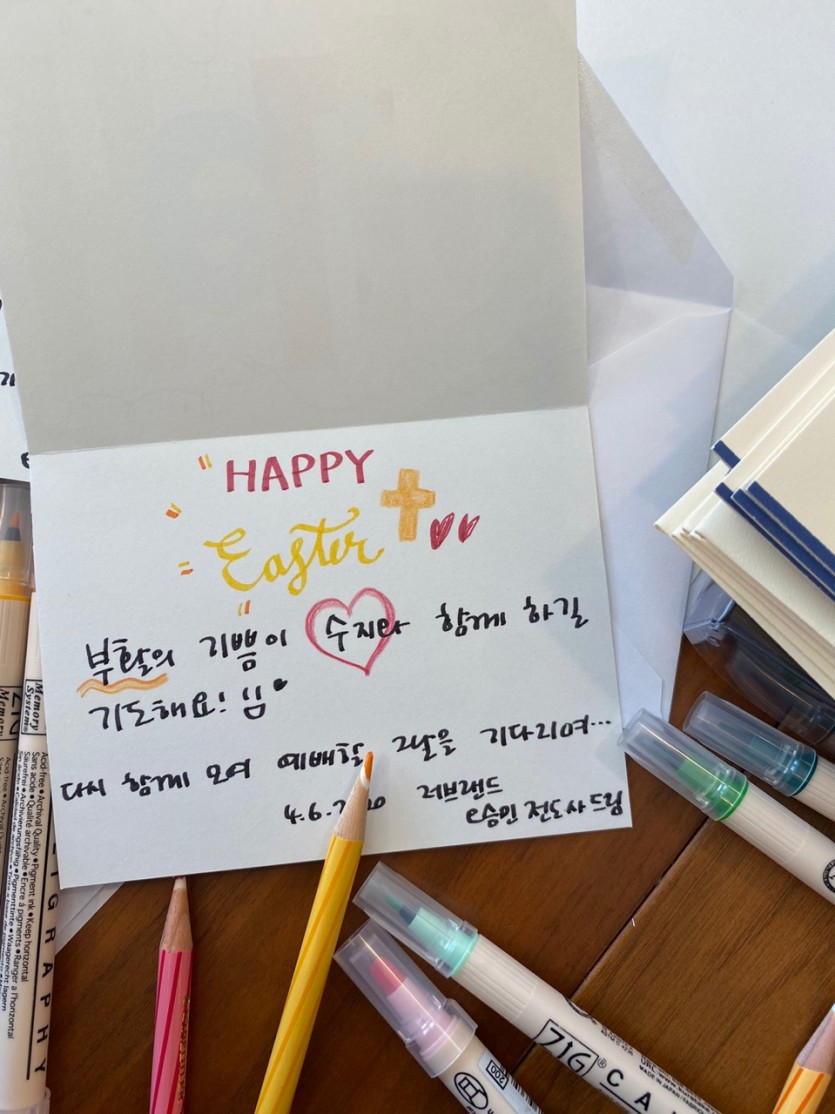 HAPPY
Easter
부활의 기쁨이 수지와 함께 하길
기도해요!
다시 함께 모여 예배할 그날을 기다리며...
4.6.2020 러브랜드
전도사 드림
Memory
System
Acid-free • Archival Quality • Pigment ink • Keep horizontal
Sans acide • Qualité archivable • Encre à pigments • Ranger à l'horizontal
Säurefrei • Archivierungsfähig • Pigmenttinte • Waagerecht lagern
ZIG
CA
MADE IN JAPAN